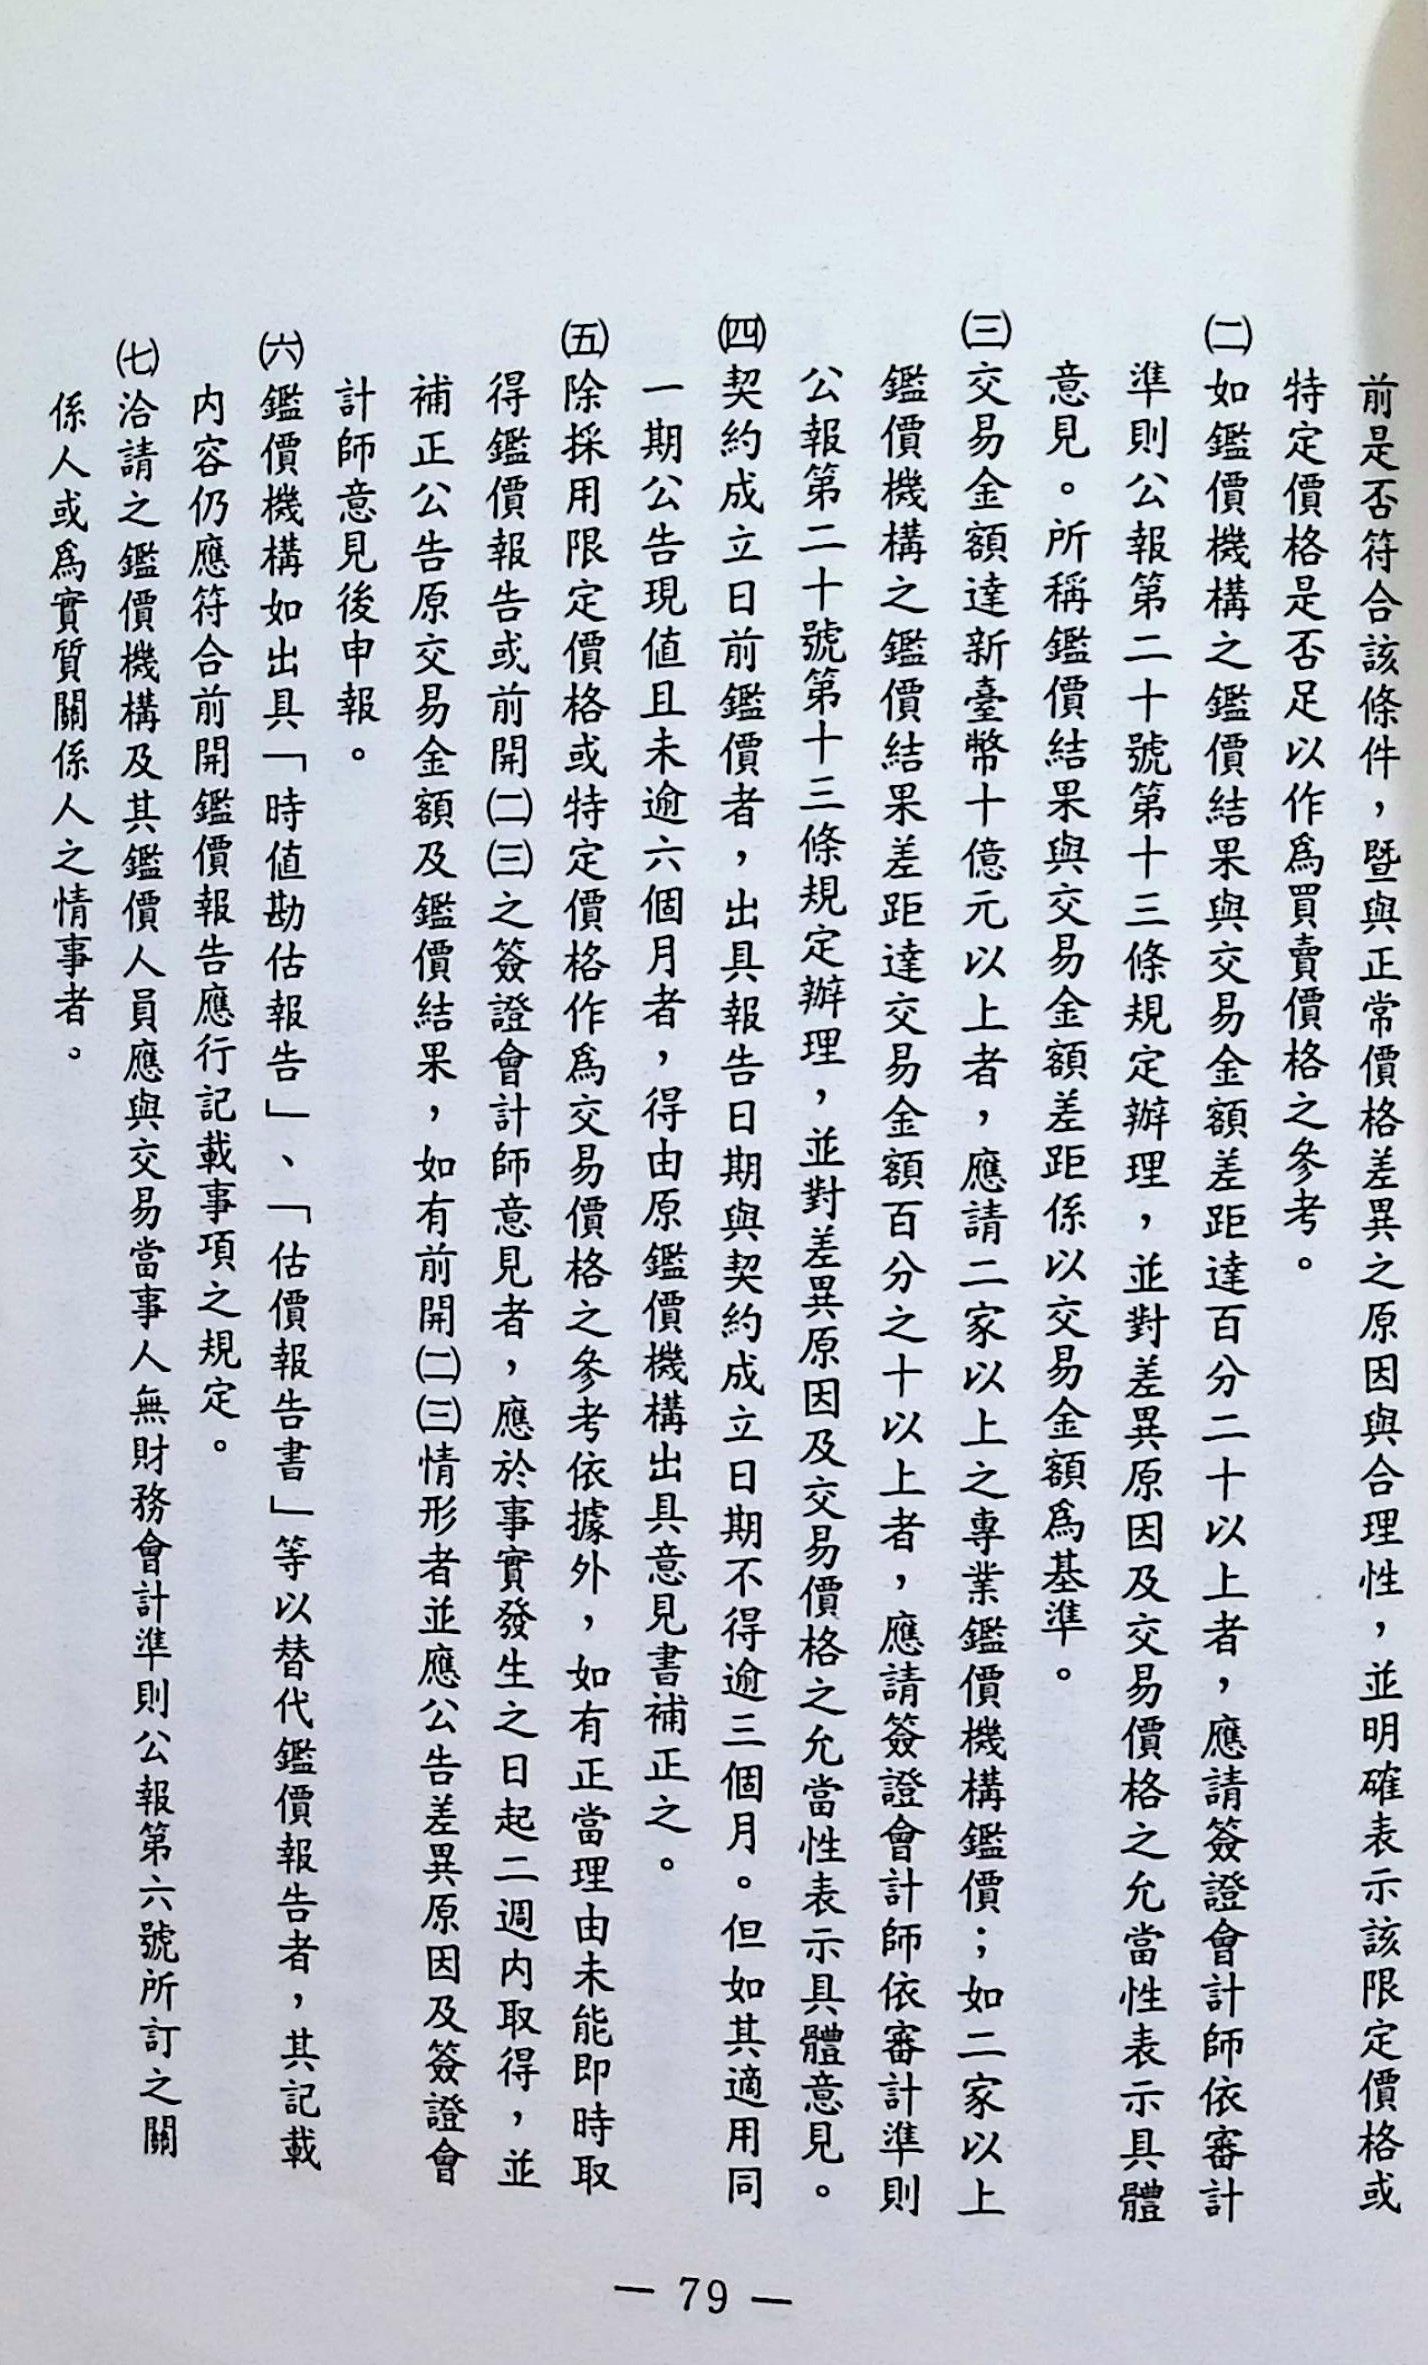 前是否符合該條件，暨與正常價格差異之原因與合理性，並明確表示該限定價格或
特定價格是否足以作爲買賣價格之參考。
㈡如鑑價機構之鑑價結果與交易金額差距達百分二十以上者，應請簽證會計師依審計
準則公報第二十號第十三條規定辦理，並對差異原因及交易價格之允當性表示具體
意見。所稱鑑價結果與交易金額差距係以交易金額爲基準。
㈢交易金額達新臺幣十億元以上者，應請二家以上之專業鑑價機構鑑價；如二家以上
鑑價機構之鑑價結果差距達交易金額百分之十以上者，應請簽證會計師依審計準則
公報第二十號第十三條規定辦理，並對差異原因及交易價格之允當性表示具體意見。
㈣契約成立日前鑑價者，出具報告日期與契約成立日期不得逾三個月。但如其適用同
一期公告現值且未逾六個月者，得由原鑑價機構出具意見書補正之。
㈤除採用限定價格或特定價格作爲交易價格之參考依據外，如有正當理由未能即時取
得鑑價報告或前開㈡㈢之簽證會計師意見者，應於事實發生之日起二週內取得，並
補正公告原交易金額及鑑價結果，如有前開㈡㈢情形者並應公告差異原因及簽證會
計師意見後申報。
㈥鑑價機構如出具「時值勘估報告」、「估價報告書」等以替代鑑價報告者，其記載
內容仍應符合前開鑑價報告應行記載事項之規定。
㈦洽請之鑑價機構及其鑑價人員應與交易當事人無財務會計準則公報第六號所訂之關
係人或爲實質關係人之情事者。
— 79 —